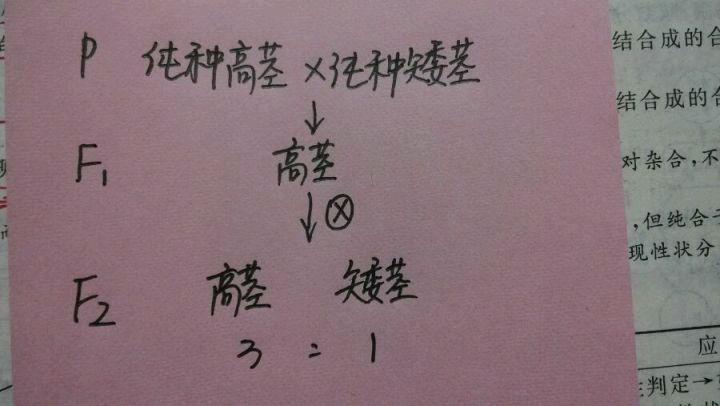 P 纯种高茎 × 纯种矮茎
↓
F₁ 高茎
↓⊗
F₂ 高茎 矮茎
3 : 1
结合成的合
结合成的合
对杂合,不
,但纯合子
现性状分
应
判定→